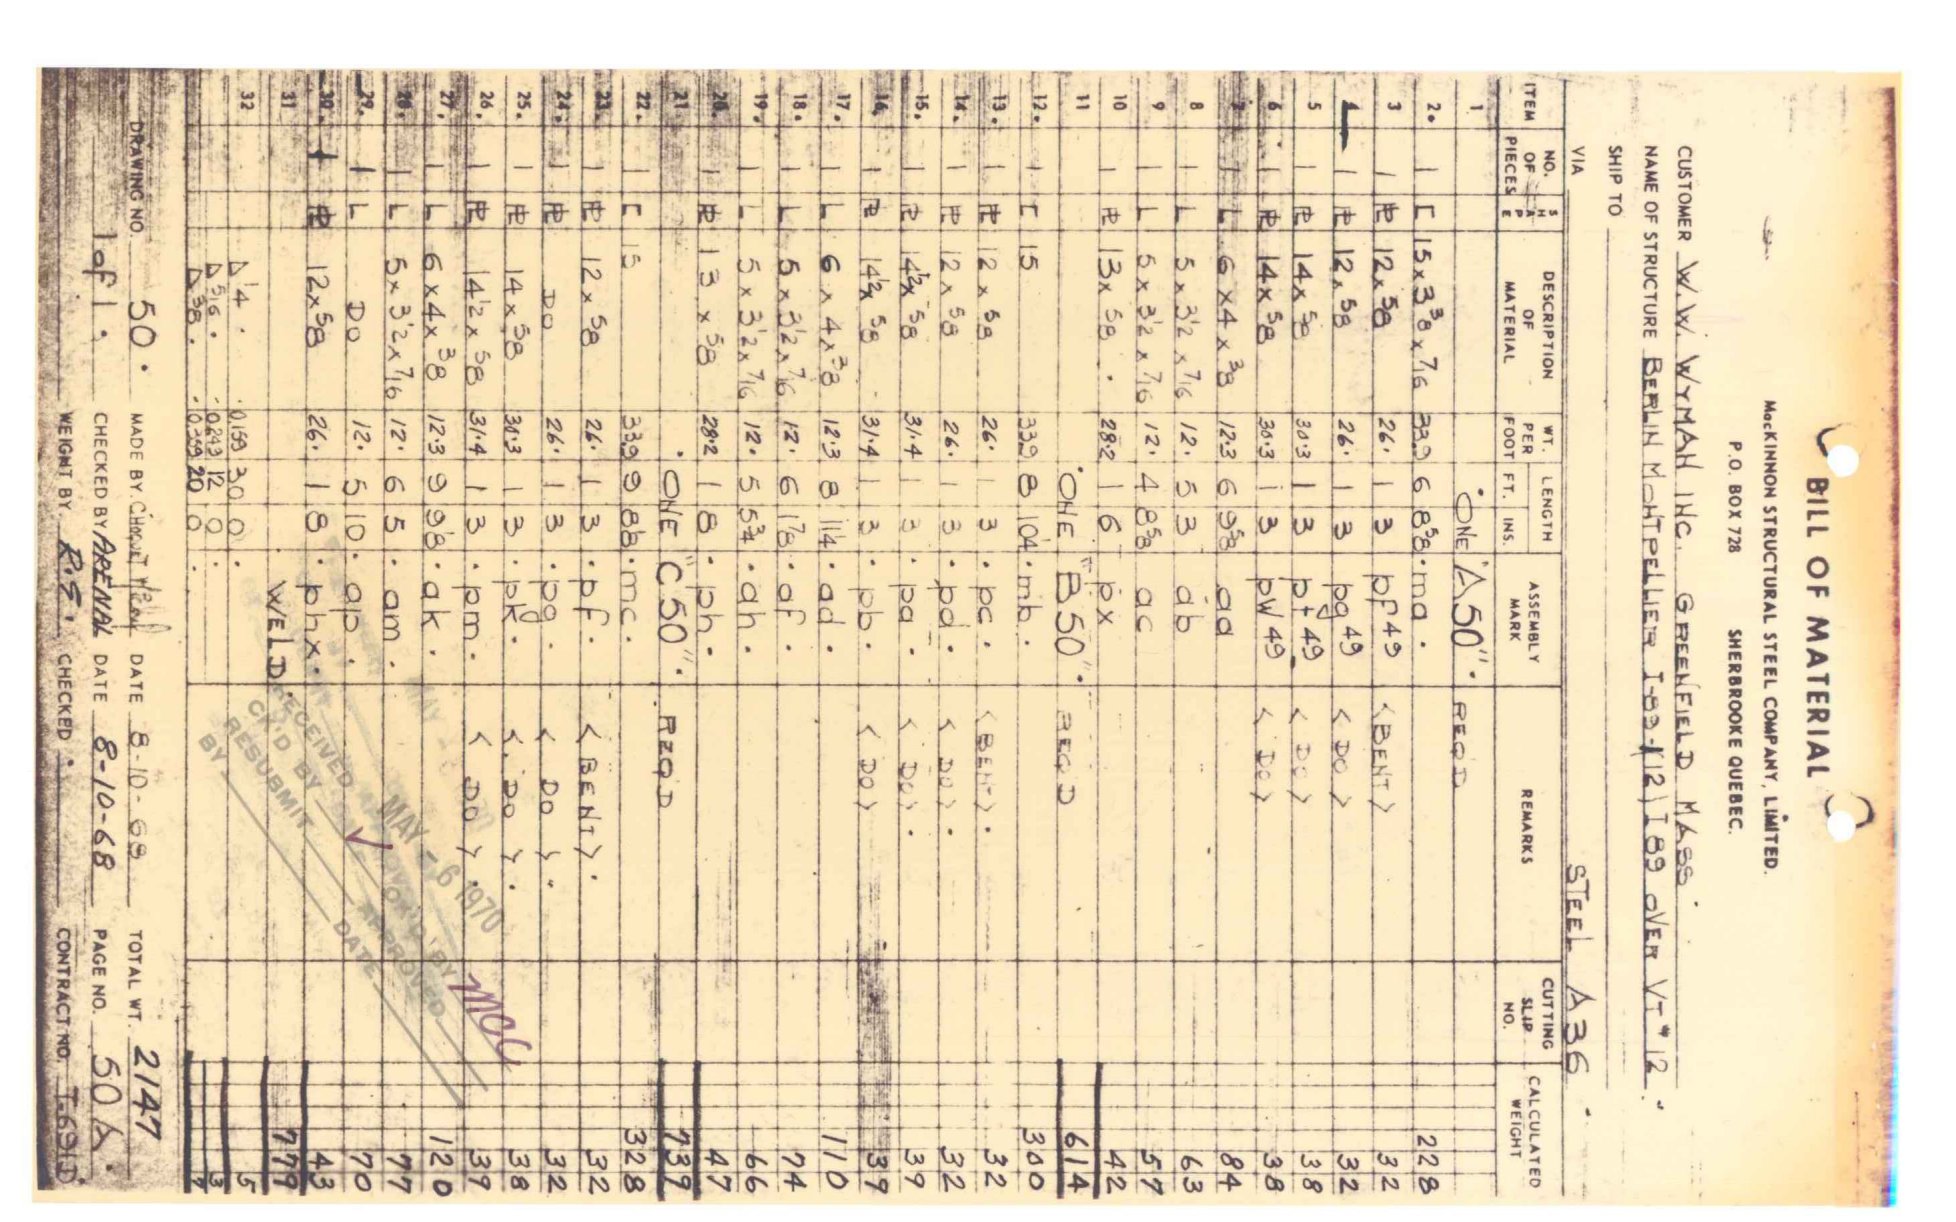 BILL OF MATERIAL
McKINNON STRUCTURAL STEEL COMPANY, LIMITED.
P.O. BOX 728 SHERBROOKE QUEBEC.
CUSTOMER W.W. WYMAN INC. GREENFIELD MASS.
NAME OF STRUCTURE BERLIN MONTPELLIER I-89-1(12) I 89 OVER VT #12.
SHIP TO
VIA STEEL A36.
ITEM NO. OF PIECES SHAPE DESCRIPTION OF MATERIAL WT. PER FOOT LENGTH FT. INS. ASSEMBLY MARK REMARKS CUTTING SLIP NO. CALCULATED WEIGHT
1 ONE "A50". REQ'D
2. 1 [ 15 x 3 3/8 x 7/16 33.9 6 8 5/8 ma. 228
3 1 PL 12 x 5/8 26. 1 3 pf 49 <BENT> 32
4 1 PL 12 x 5/8 26. 1 3 pg 49 < DO > 32
5 1 PL 14 x 5/8 30.3 1 3 pt 49 < DO > 38
6. 1 PL 14 x 5/8 30.3 1 3 pw 49 < DO > 38
7. 1 L 6 x 4 x 3/8 12.3 6 9 5/8 aa 84
8 1 L 5 x 3 1/2 x 7/16 12. 5 3 ab 63
9 1 L 5 x 3 1/2 x 7/16 12. 4 8 5/8 ac 57
10 1 PL 13 x 5/8. 28.2 1 6 px 42
11 ONE "B50". REQ'D 614
12. 1 [ 15 33.9 8 10 1/4. mb. 300
13. 1 PL 12 x 5/8 26. 1 3. pc. <BENT>. 32
14. 1 PL 12 x 5/8 26. 1 3. pd. < DO >. 32
15. 1 PL 14 1/2 x 5/8 31.4 1 3. pa. < DO >. 39
16. 1 PL 14 1/2 x 5/8 31.4 1 3. pb. < DO > 39
17. 1 L 6 x 4 x 3/8 12.3 8 11 1/4. ad. 110
18. 1 L 5 x 3 1/2 x 7/16 12. 6 1 7/8. af. 74
19. 1 L 5 x 3 1/2 x 7/16 12. 5 5 3/4. ah. 66
20. 1 PL 13 x 5/8 28.2 1 8. ph. 47
21. ONE "C50". REQ'D 739
22. 1 [ 15 33.9 9 8 1/8. mc. 328
23. 1 PL 12 x 5/8 26. 1 3. pf. < BENT >. 32
24. 1 PL DO 26. 1 3. pg. < DO >. 32
25. 1 PL 14 x 5/8 30.3 1 3. pk. < DO >. 38
26. 1 PL 14 1/2 x 5/8 31.4 1 3. pm. < DO >. 39
27. 1 L 6 x 4 x 3/8 12.3 9 9 1/8. ak. 120
28. 1 L 5 x 3 1/2 x 7/16 12. 6 5. am. 77
29. 1 L DO 12. 5 10. ap. 70
30. 1 PL 12 x 5/8 26. 1 8. phx. 43
31 WELD. 779
32 △ 1/4. .0159 30 0. 5
△ 5/16. .0243 12 0. 3
△ 3/8. .0359 20 0.
RECEIVED MAY - 6 1970
CK'D BY OK'D BY MOC
RESUBMIT APPROVED
BY DATE
DRAWING NO. 50. MADE BY DATE 8-10-68 TOTAL WT. 2147
1 of 1. CHECKED BY ARENAL DATE 8-10-68 PAGE NO. 50A.
WEIGHT BY R.E. CHECKED. CONTRACT NO. T-691D.